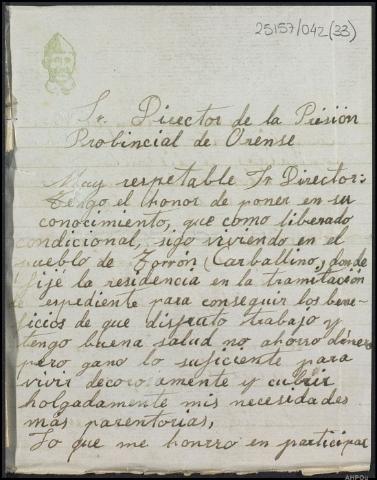 25157/042(33)
Sr. Director de la Prisión
Provincial de Orense
Muy respetable Sr Director:
Tengo el honor de poner en su
conocimiento, que como liberado
condicional, sigo viviendo en el
pueblo de (Carballino, donde
fijé la residencia en la tramitación
de espediente para conseguir los bene-
ficios de que disfruto trabajo y
tengo buena salud no ahorro dinero
pero gano lo suficiente para
vivir decorosamente y cubrir
holgadamente mis necesidades
más parentorias,
Lo que me honero en participar
AHPOu